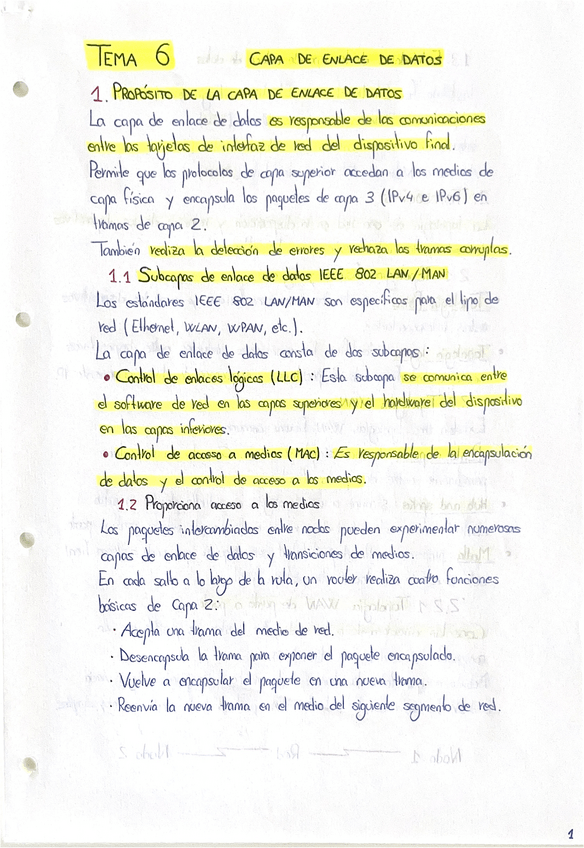 TEMA 6 CAPA DE ENLACE DE DATOS
1. PROPÓSITO DE LA CAPA DE ENLACE DE DATOS
La capa de enlace de datos es responsable de las comunicaciones
entre las tarjetas de interfaz de red del dispositivo final.
Permite que los protocolos de capa superior accedan a los medios de
capa física y encapsula los paquetes de capa 3 (IPv4 e IPv6) en
tramas de capa 2.
También realiza la detección de errores y rechaza las tramas corruptas.
1.1 Subcapas de enlace de datos IEEE 802 LAN/MAN
Los estándares IEEE 802 LAN/MAN son específicos para el tipo de
red (Ethernet, WLAN, WPAN, etc.).
La capa de enlace de datos consta de dos subcapas:
• Control de enlaces lógicos (LLC) : Esta subcapa se comunica entre
el software de red en las capas superiores y el hardware del dispositivo
en las capas inferiores.
• Control de acceso a medios (MAC) : Es responsable de la encapsulación
de datos y el control de acceso a los medios.
1.2 Proporciona acceso a los medios
Los paquetes intercambiados entre nodos pueden experimentar numerosas
capas de enlace de datos y transiciones de medios.
En cada salto a lo largo de la ruta, un router realiza cuatro funciones
básicas de Capa 2:
· Acepta una trama del medio de red.
· Desencapsula la trama para exponer el paquete encapsulado.
· Vuelve a encapsular el paquete en una nueva trama.
· Reenvía la nueva trama en el medio del siguiente segmento de red.
1